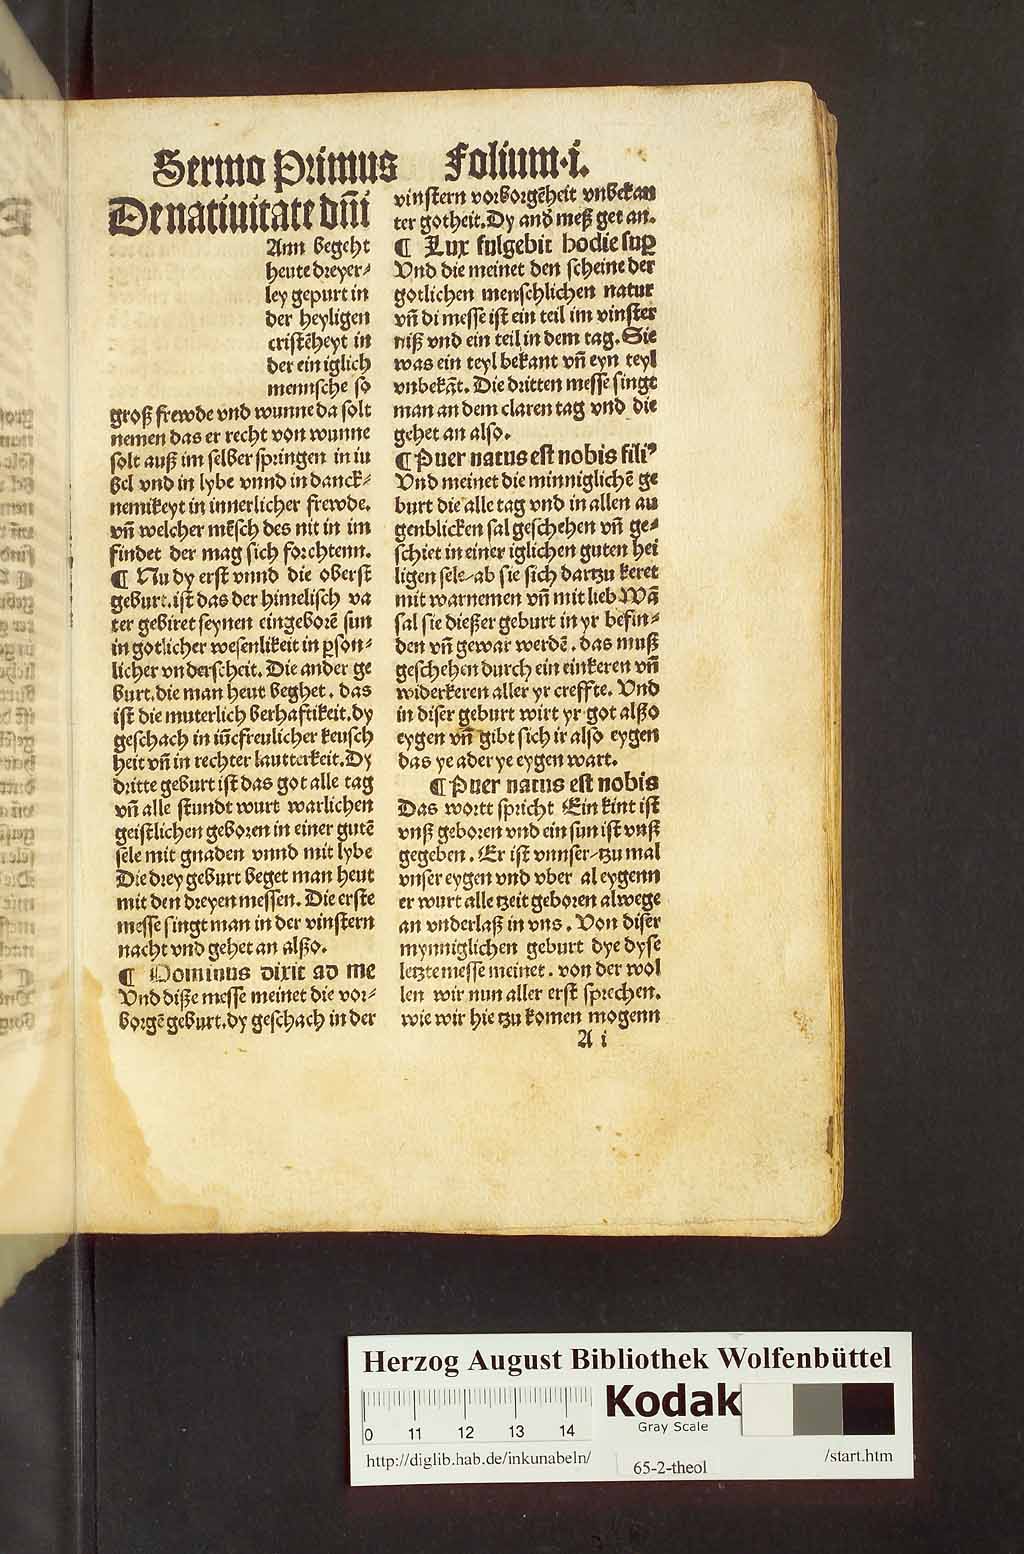 Sermo Primus Folium·i.
De natiuitate dn̄i
Ann begeht
heute dreyer⸗
ley gepurt in
der heyligen
cristēheyt in
der ein iglich
mennsche so
groß frewde vnd wunne da solt
nemen das er recht von wunne
solt auß im selber springen in iu
bel vnd in lybe vnnd in danck⸗
nemikeyt in innerlicher frewde.
vn̄ welcher mēsch des nit in im
findet der mag sich forchtenn.
¶ Nu dy erst vnnd die oberst
geburt.ist das der himelisch va
ter gebiret seynen eingeborē sun
in gotlicher wesenlikeit in ꝑson⸗
licher vnderscheit. Die ander ge
burt.die man heut beghet. das
ist die muterlich berhaftikeit.dy
geschach in iūcfreulicher keusch
heit vn̄ in rechter lautterkeit.Dy
dritte geburt ist das got alle tag
vn̄ alle stundt wurt warlichen
geistlichen geboren in einer gutē
sele mit gnaden vnnd mit lybe
Die drey geburt beget man heut
mit den dreyen messen. Die erste
messe singt man in der vinstern
nacht vnd gehet an alßo.
¶ Dominus dixit ad me
Vnd diße messe meinet die vor⸗
borgē geburt.dy geschach in der
vinstern vorborgēheit vnbekan
ter gotheit.Dy and meß get an.
¶ Lux fulgebit hodie suꝑ
Vnd die meinet den scheine der
gotlichen menschlichen natur
vn̄ di messe ist ein teil im vinster
niß vnd ein teil in dem tag. Sie
was ein teyl bekant vn̄ eyn teyl
vnbekāt. Die dritten messe singt
man an dem claren tag vnd die
gehet an also.
¶ Puer natus est nobis filiꝰ
Vnd meinet die minniglichē ge
burt die alle tag vnd in allen au
genblicken sal geschehen vn̄ ge⸗
schiet in einer iglichen guten hei
ligen sele/ab sie sich dartzu keret
mit warnemen vn̄ mit lieb Wā
sal sie dießer geburt in yr befin⸗
den vn̄ gewar werdē. das muß
geschehen durch ein einkeren vn̄
widerkeren aller yr creffte. Vnd
in diser geburt wirt yr got alßo
eygen vn̄ gibt sich ir also eygen
das ye ader ye eygen wart.
¶ Puer natus est nobis
Das wortt spricht Ein kint ist
vnß geboren vnd ein sun ist vnß
gegeben. Er ist vnnser/tzu mal
vnser eygen vnd vber al eygenn
er wurt alle tzeit geboren alwege
an vnderlaß in vns. Von diser
mynniglichen geburt dye dyse
letzte messe meinet. von der wol
len wir nun aller erst sprechen.
wie wir hie tzu komen mogenn
A i
Herzog August Bibliothek Wolfenbüttel
Kodak
Gray Scale
0 11 12 13 14
http://diglib.hab.de/inkunabeln/
65-2-theol
/start.htm